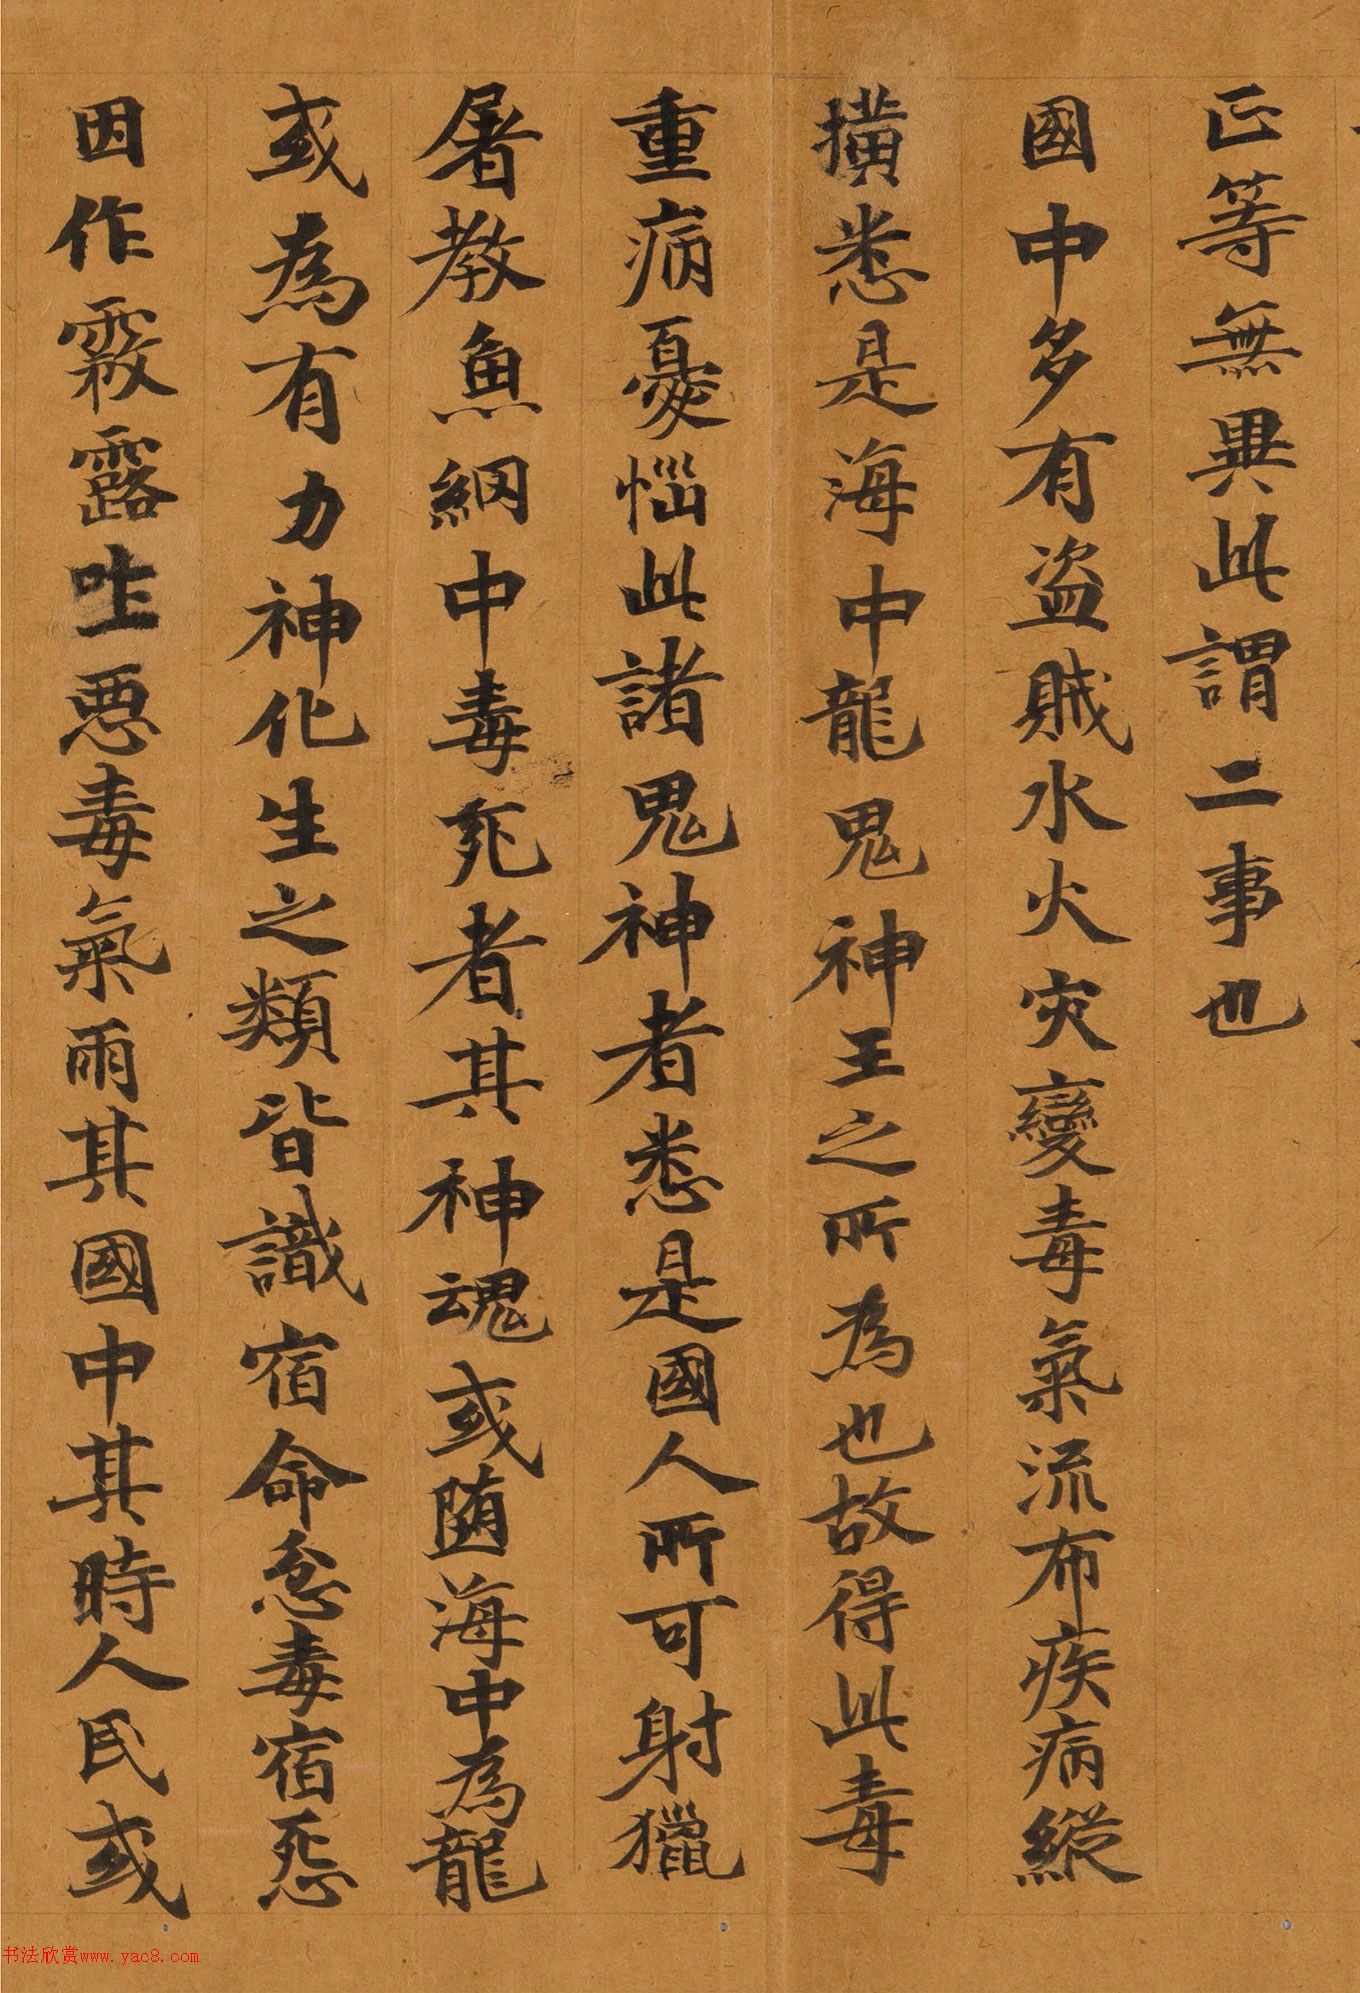 正等無異此謂二事也
國中多有盗賊水火灾變毒氣流布疾病縱
撗悉是海中龍鬼神王之所為也故得此毒
重病憂惱此諸鬼神者悉是國人所可射獵
屠教魚網中毒死者其神魂或随海中為龍
或為有力神化生之類皆識宿命忿毒宿怨
因作霧露吐惡毒氣雨其國中其時人民或
书法欣赏www.yac8.com